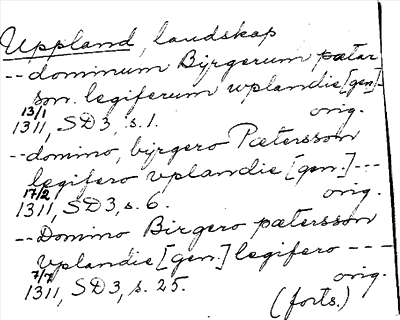 Uppland, landskap
-- dominum Byrgerum pætar
son. legiferum wplandie [gen]-
13/1 orig.
1311, SD3, s. 1.
-- domino, byrgero Pætersson
legifero vplandie [gen.] ---
17/2 orig.
1311, SD3, s. 6.
-- Domino Birgero pætersson
Vplandie [gen.] legifero ---
7/7 orig.
1311, SD3, s. 25.
(forts.)